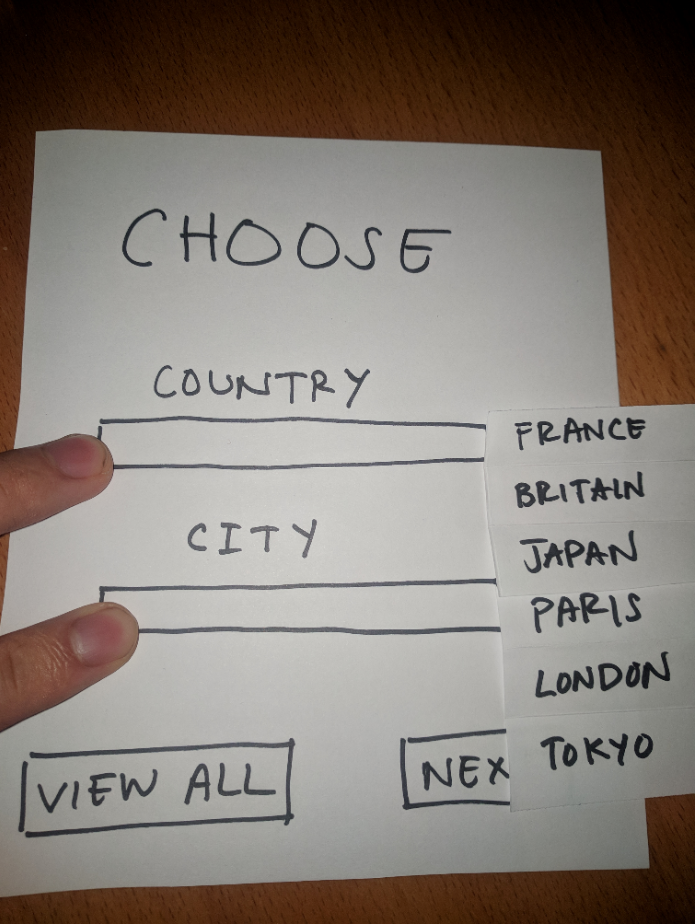 CHOOSE
COUNTRY
FRANCE
BRITAIN
CITY
JAPAN
PARIS
LONDON
VIEW ALL
NEX
TOKYO